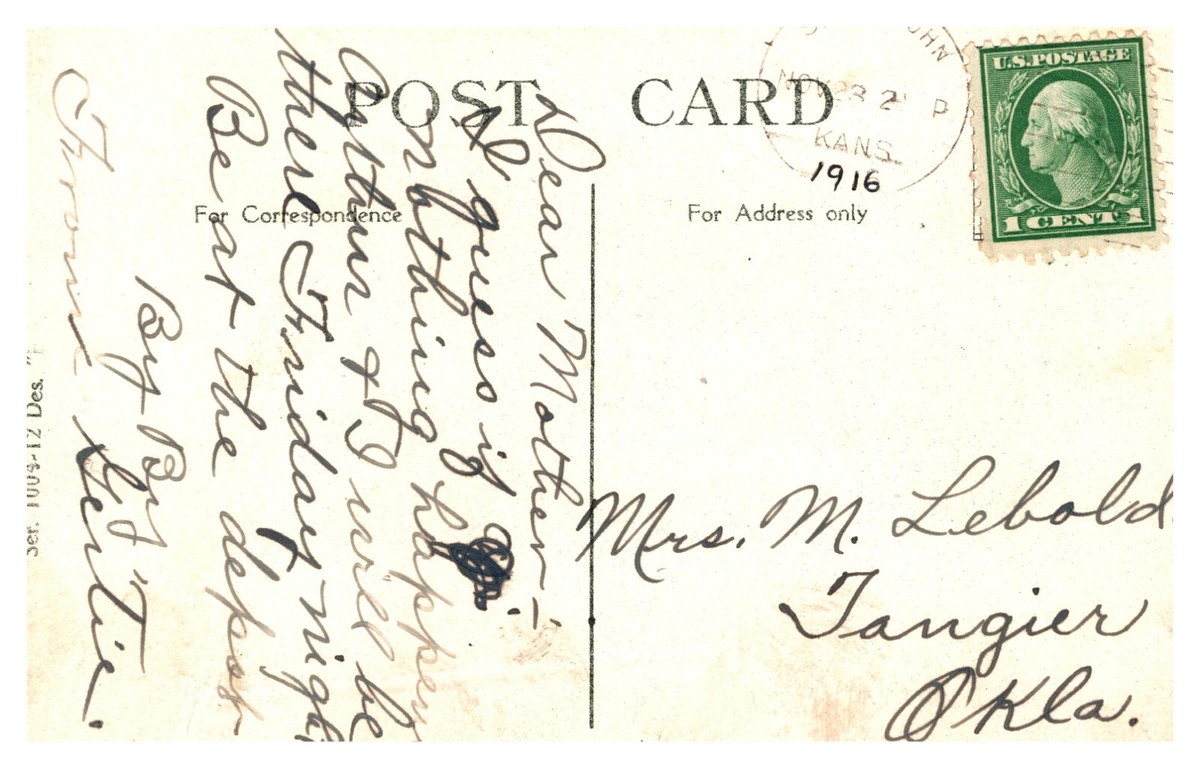 POST CARD
For Correspondence
For Address only
OHN
NOV 23 2 P
KANS.
1916
U.S. POSTAGE
1 CENT 1
Dear Mother—
I guess if
nothing happens
Arthur & I will be
there Friday night
Be at the depot
By By
From Gertie.
Mrs. M. Lebold
Tangier
Okla.
Ser. 1004-12 Des.